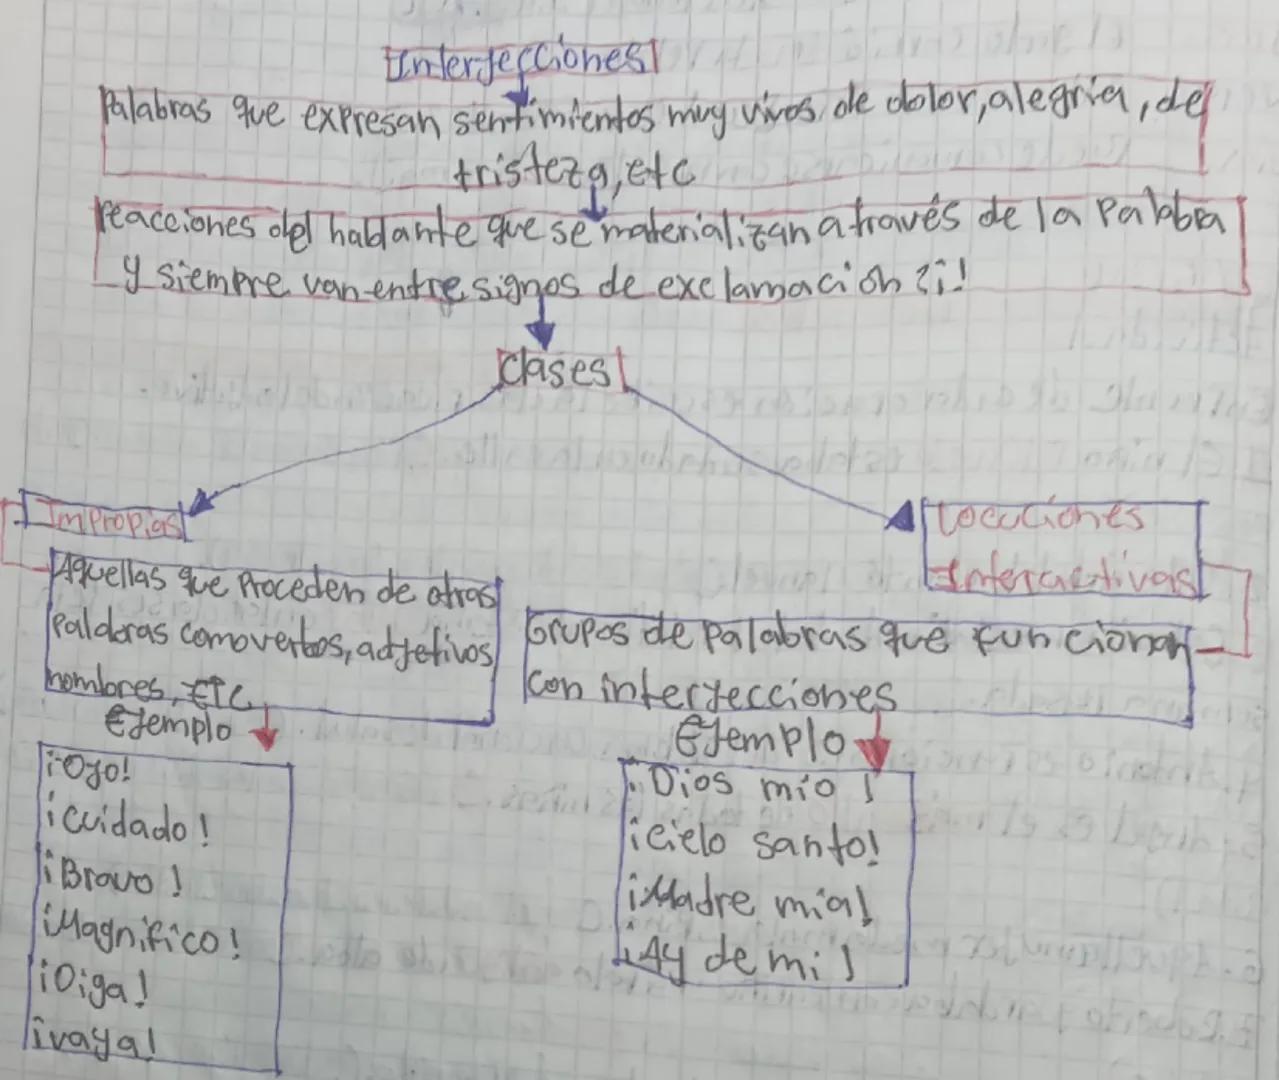 Interjecciones
Palabras que expresan sentimientos muy vivos de dolor, alegría, de
tristeza, etc
reacciones del hablante que se materializan a través de la palabra
y siempre van entre signos de exclamación ¿¡!
Clases
Impropias
Locuciones
Interactivas
Aquellas que Proceden de otras
Palabras como verbos, adjetivos
nombres, ETC
Ejemplo
Grupos de palabras que funcionan
con interjecciones
Ejemplo
¡Ojo!
¡Cuidado!
¡Bravo!
¡Magnifico!
¡Oiga!
¡vaya!
¡Dios mio!
¡Cielo santo!
¡Madre mia!
¡Ay de mi!